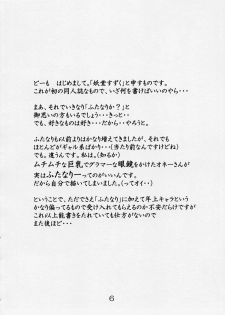 どーも はじめまして。「妖堂すずく」と申すものです。
これが初の同人誌なもので、いざ何を書けばいいのやら・・・
まあ、それでいきなり「ふたなりか？」と
御思いの方もいるでしょう・・きっと・・
でも、好きなものは好き・・だから・・やろう。
ふたなりも以前よりはかなり増えてきましたが、それでも
ほとんどがギャル系ばかり・・（当たり前なんですけどね）
でも、違うんです。私は。（知るか）
ムチムチな巨乳でグラマーな眼鏡をかけたオネーさんが
実はふたなりーってのがいいんです。
だから自分で描いてしまいました。（ってオイ・・）
ということで、ただでさえ「ふたなり」に加えて年上キャラという
かなり偏ってるもので受け入れてもらえるのか不安だらけですが
これ以上能書きをたれていても仕方がないので
また後ほど・・・
6